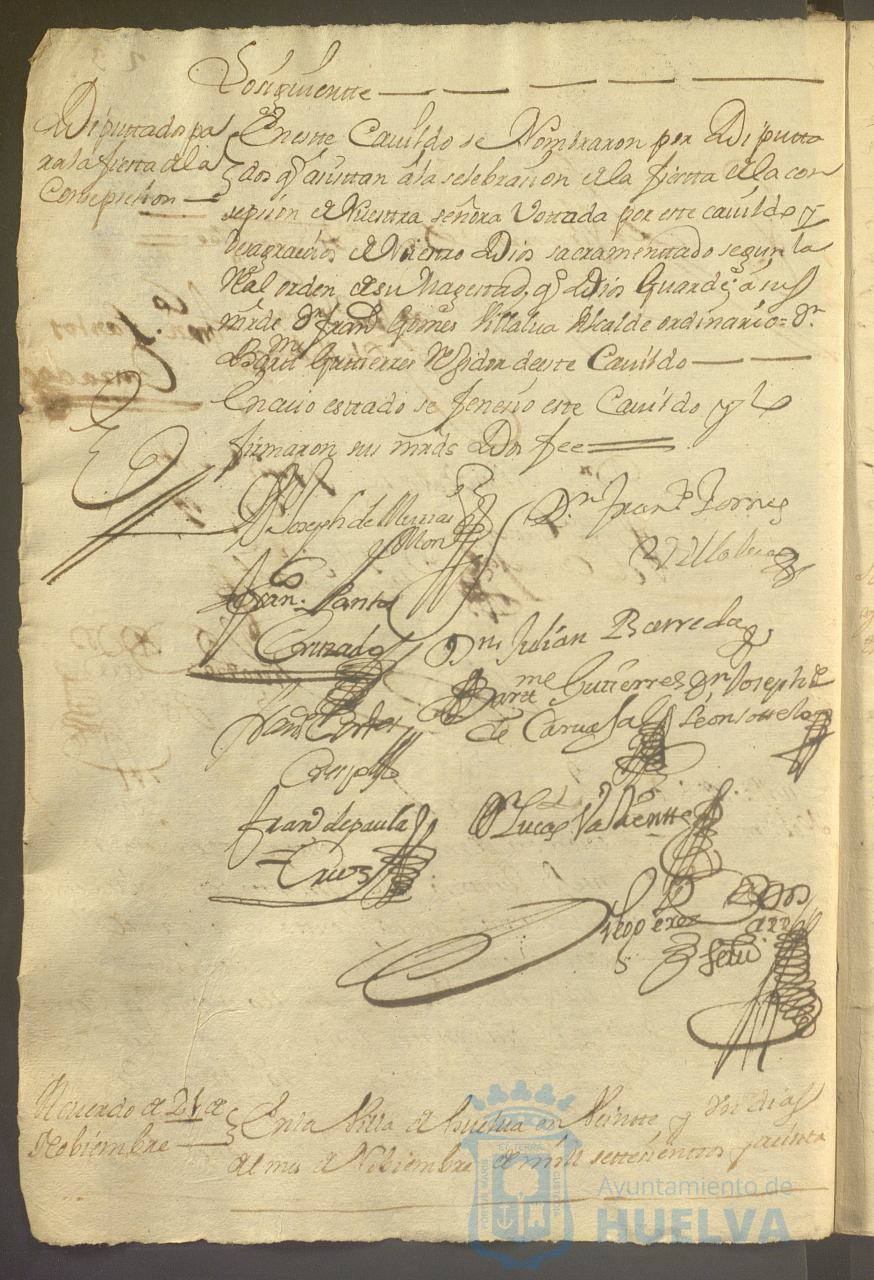 Lo siguientte
Diputtados pa
ra la fiesta de la
Consepsion
En este Cavildo se Nombraron por Diputta
dos qe asisttan a la selebrasion de la fiestta de la con
sepsion de Nuestra señora Vottada por este cavildo y
desagravios de Nuestro Dios sacramenttado segun la
Real orden de su Magestad, qe Dios Guarde, a sus
mrds Dn Franco Gomes Villalva Alcalde ordinario = Dn
Barme Gutierres Rexidor de este Cavildo
En cuio estado se fenesio este Cavildo y lo
firmaron sus mrds Doi fee
Joseph de
Dn Franco Gomes
Villalva
Fran. Santos
Cruzado
Dn Julián Barreda
Barme Gutierres
de Carvajal
Dn Joseph
León sottelo
Cortes
Crespo
Franco de paula
Cruz
Dn Lucas Valiente
Acuerdo de 21 de
Nobiembre
En la Villa de Huelva en Veintte y Un dias
del mes de Nobiembre de mill settesienttos
Ayuntamiento de
HUELVA